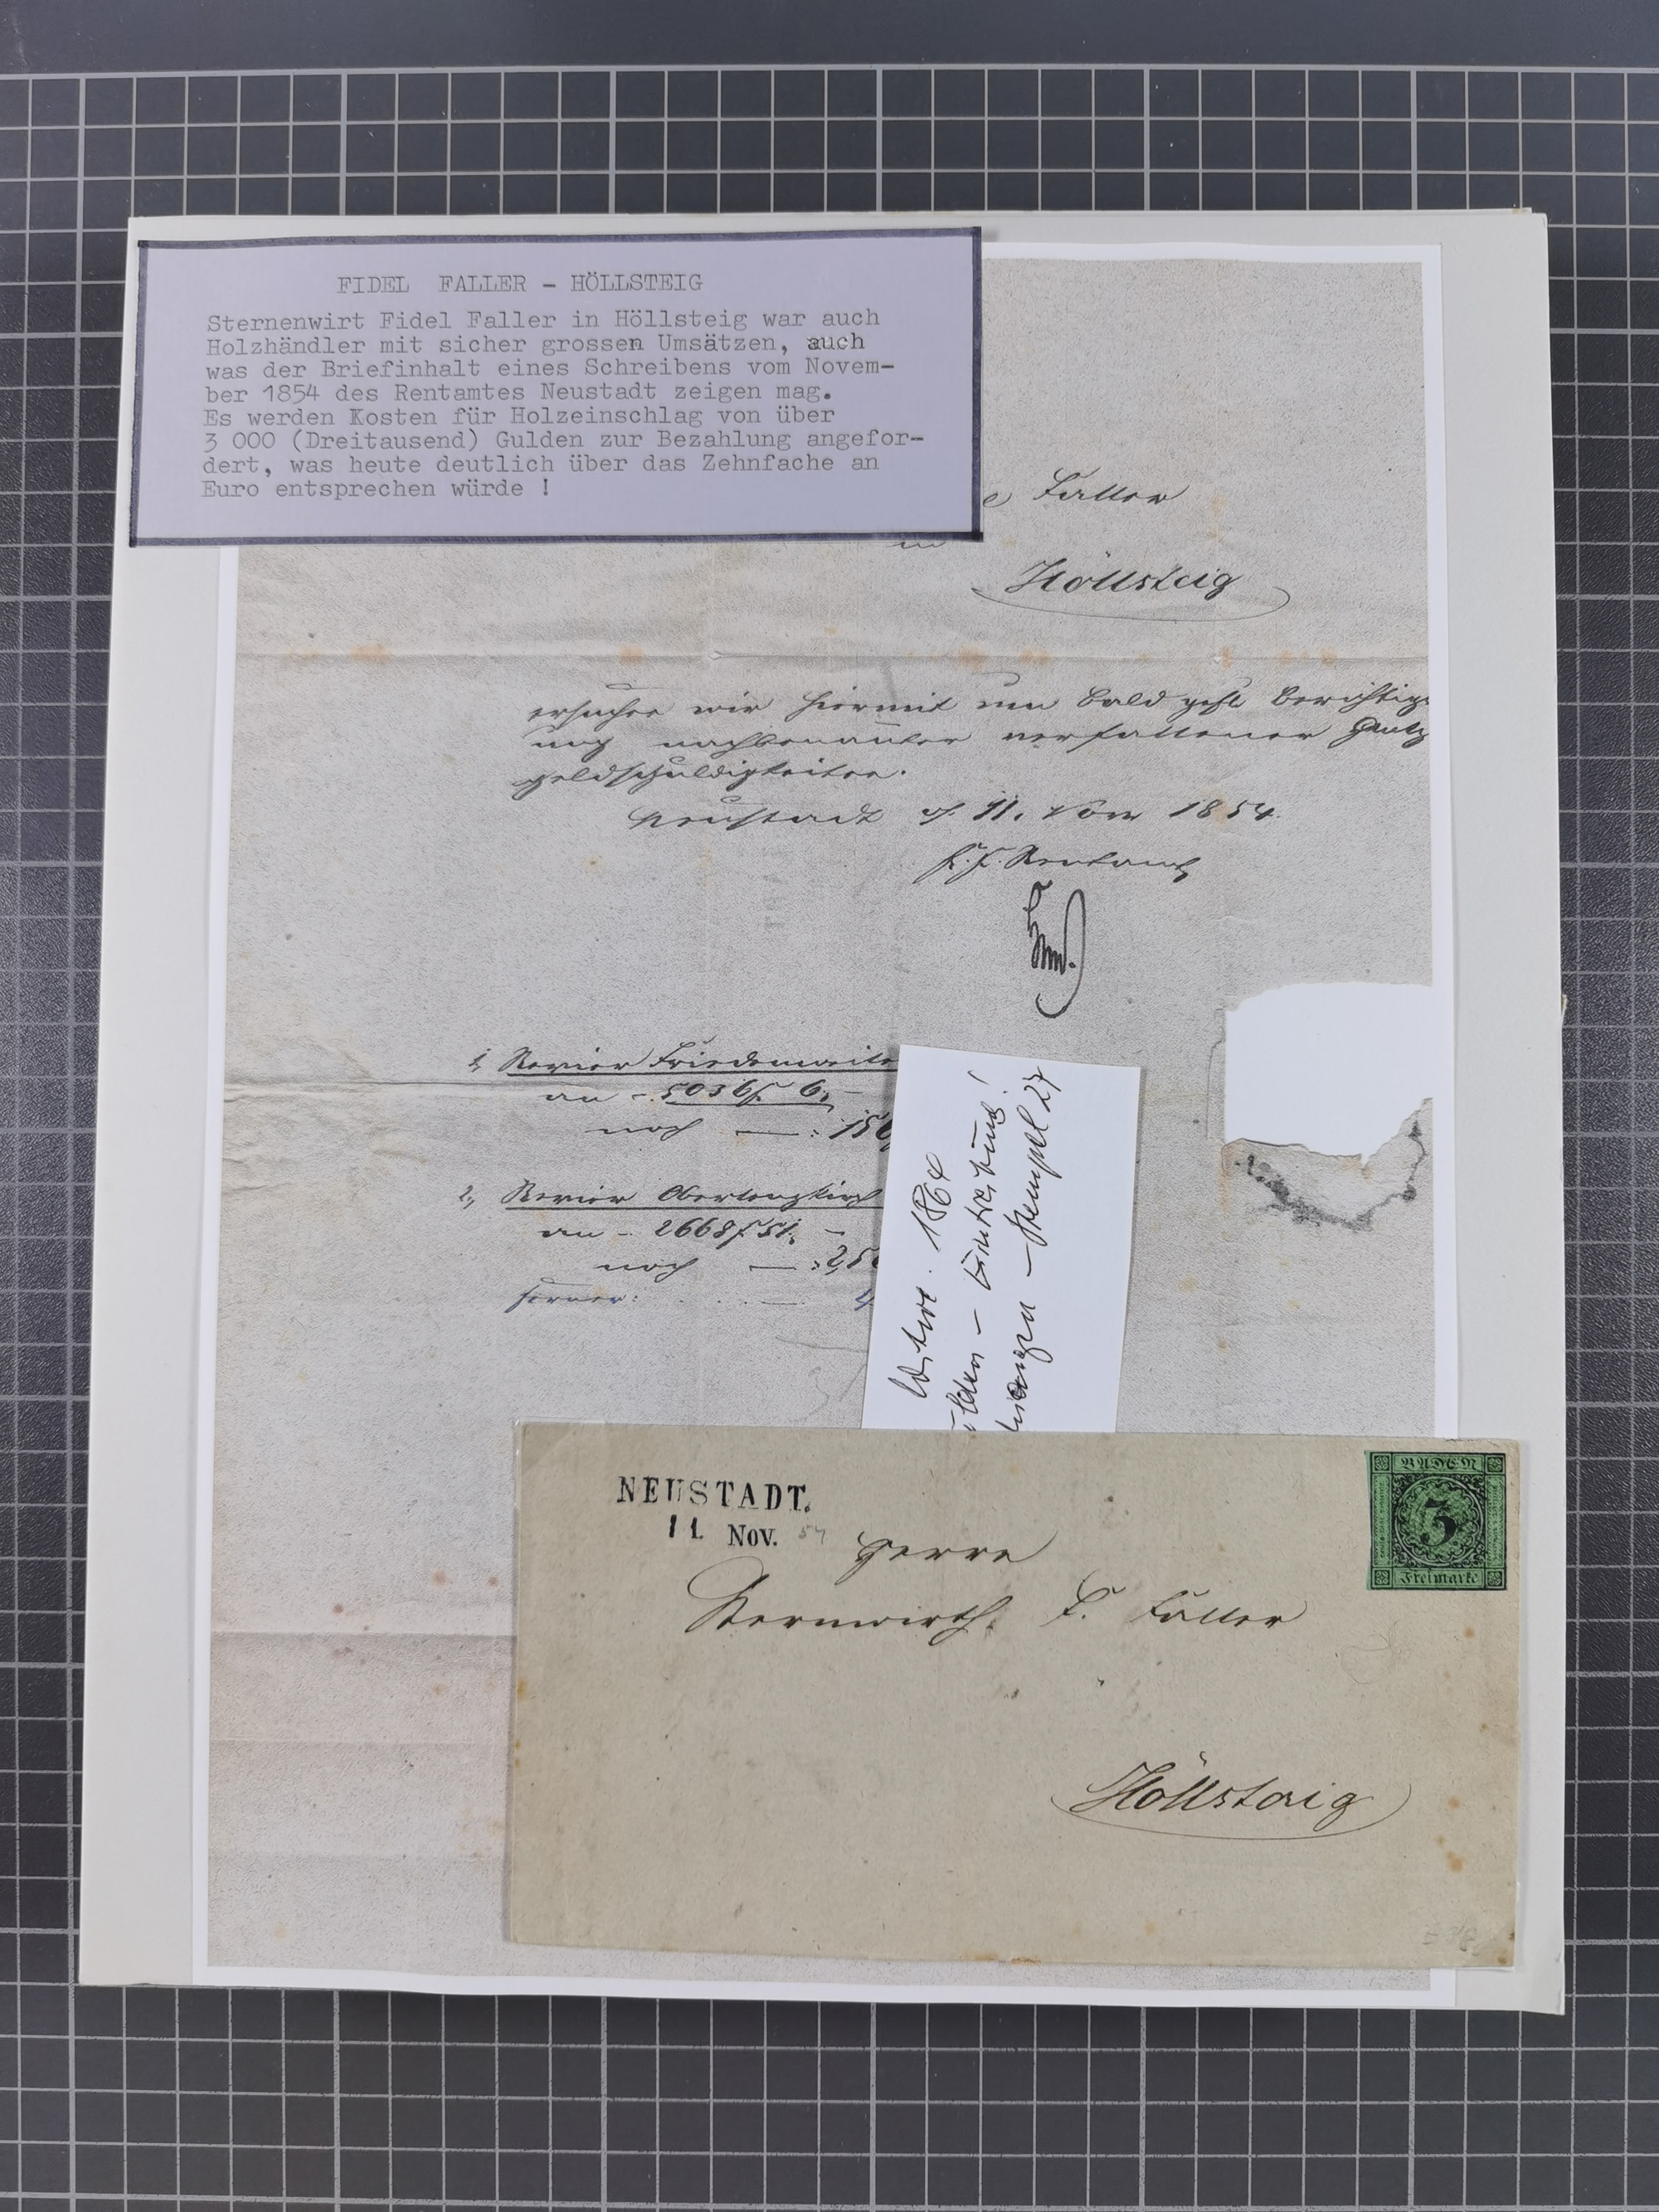 FIDEL FALLER - HÖLLSTEIG
Sternenwirt Fidel Faller in Höllsteig war auch
Holzhändler mit sicher grossen Umsätzen, auch
was der Briefinhalt eines Schreibens vom Novem-
ber 1854 des Rentamtes Neustadt zeigen mag.
Es werden Kosten für Holzeinschlag von über
3 000 (Dreitausend) Gulden zur Bezahlung angefor-
dert, was heute deutlich über das Zehnfache an
Euro entsprechen würde !
Faller
in
Höllsteig
ersuchen wir hiermit um bald gefl. Berichtig-
ung nachbenannter verfallener
geldschuldigkeiten.
Neustadt d. 11. Nov 1854.
F. F. Rentamt
1, Revier Friedenweile
an - 5036 f 6, -
noch — : 150
2, Revier Oberlenzkirch
an - 2668 f 51, -
noch — :
ferner: . . . —
1864
Stempel 27
NEUSTADT.
11 Nov. 54
Herrn
Sternwirth. F. Faller
Höllstaig
BADEN
3
Freimarke